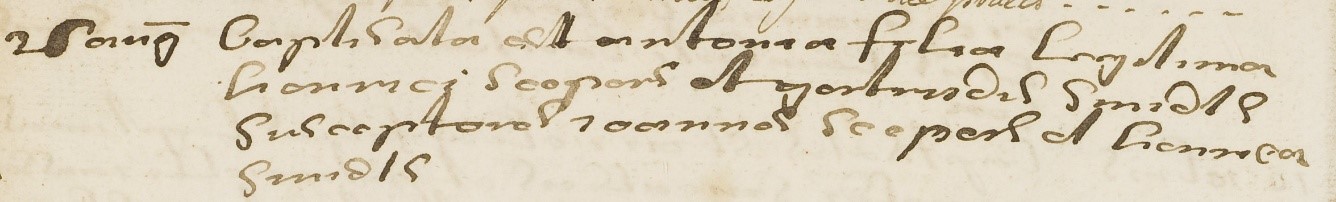 25 aug baptisata est antonia filia legitima
henrici scepers et gertrudis smidts
susceptores ioannes scepers et henrica
smidts